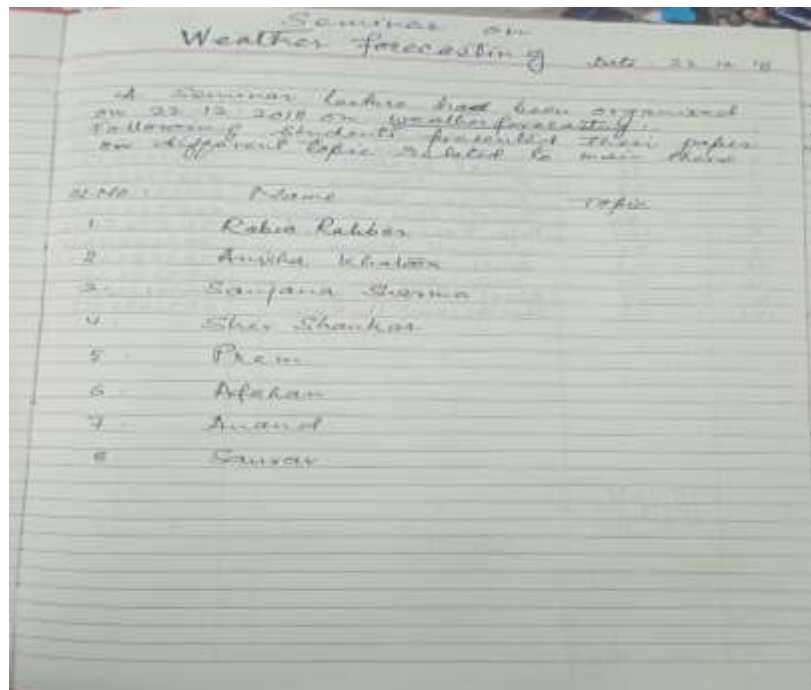 Seminar on
Weather forecasting Date 22 12 18
A Seminar lecture had been organised
on 22 12 2018 on weather forecasting.
Following students presented their paper
on different topic related to main theme
Sl.No. Name Topic
1. Rabia Rahbar
2 Khatoon
3. Sanjana Sharma
4. Shiv Shankar
5. Prem
6. Afshan
7. Anand
8 Saurav